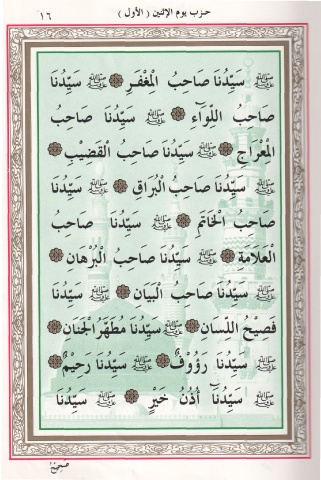 حزب يوم الإثنين ( الأول ) ١٦
ﷺ سَيِّدُنَا صَاحِبُ الْمِغْفَرِ ۞ سَيِّدُنَا
صَاحِبُ اللِّوَاءِ ۞ ﷺ سَيِّدُنَا صَاحِبُ
الْمِعْرَاجِ ۞ ﷺ سَيِّدُنَا صَاحِبُ الْقَضِيبِ
ﷺ سَيِّدُنَا صَاحِبُ الْبُرَاقِ ۞ ﷺ سَيِّدُنَا
صَاحِبُ الْخَاتَمِ ۞ ﷺ سَيِّدُنَا صَاحِبُ
الْعَلَامَةِ ۞ ﷺ سَيِّدُنَا صَاحِبُ الْبُرْهَانِ ۞
ﷺ سَيِّدُنَا صَاحِبُ الْبَيَانِ ۞ ﷺ سَيِّدُنَا
فَصِيحُ اللِّسَانِ ۞ ﷺ سَيِّدُنَا مُطَهَّرُ الْجَنَانِ ۞
ﷺ سَيِّدُنَا رَؤُوفٌ ۞ ﷺ سَيِّدُنَا رَحِيمٌ ۞
ﷺ سَيِّدُنَا أُذُنُ خَيْرٍ ۞ ﷺ سَيِّدُنَا
صَحِيحُ